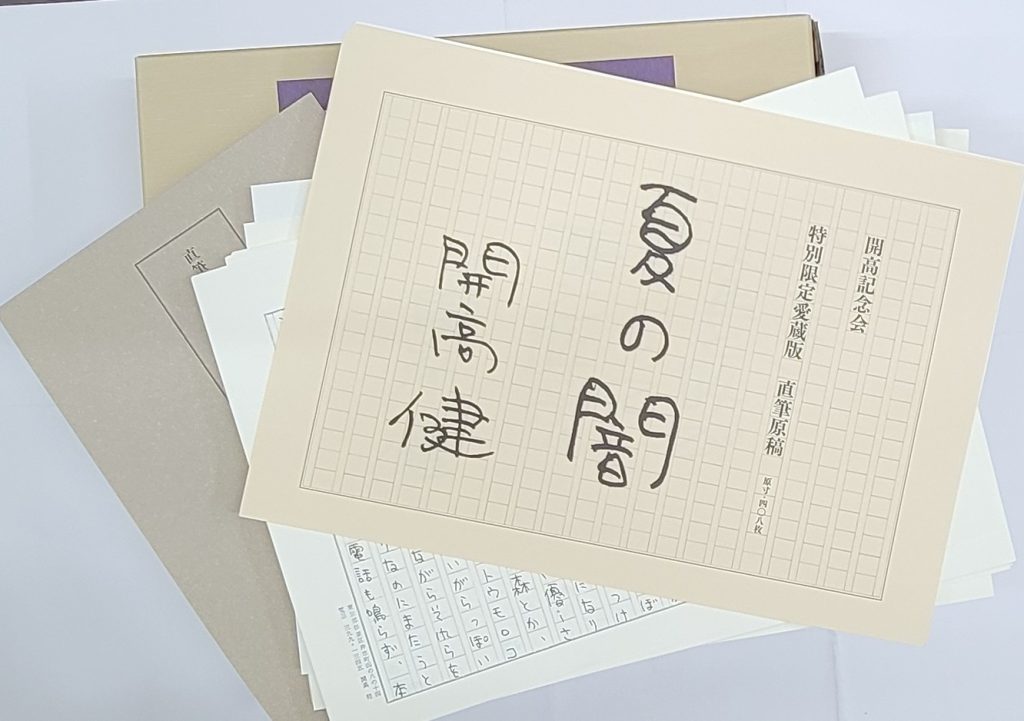 開高記念会
特別限定愛蔵版 直筆原稿 原寸・四〇八枚
夏の闇
開高健
直筆
つけ
ぼ
になり
優しさ
森とか、
トウモロコ
いがらっぽい
ながらそれらを
なのにまたうと
電話も鳴らず、本